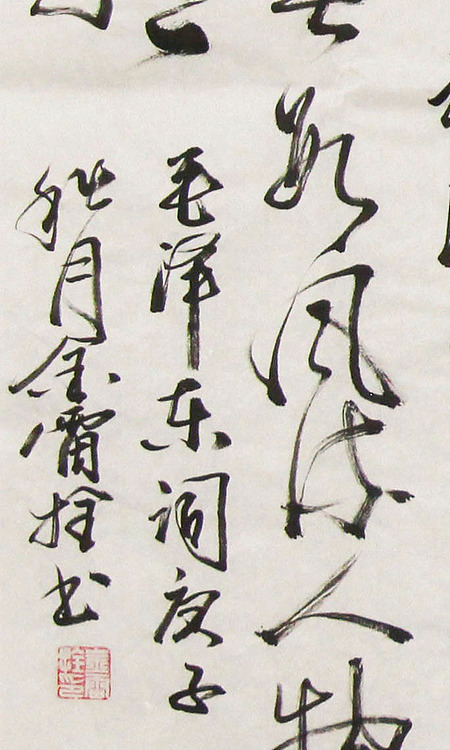 数风流人物
毛泽东词庚子
月金雷拴书